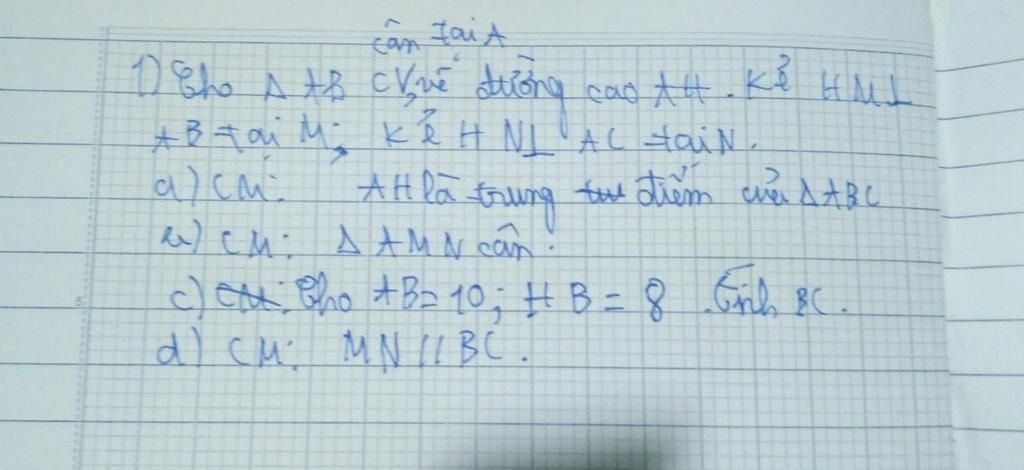 cân tại A
1) Cho Δ ABC vẽ đường cao AH. Kẻ HM⊥
AB tại M; Kẻ HN⊥ AC tại N.
a) CM: AH là trung điểm của ΔABC
b) CM: Δ AMN cân.
c) CM: Cho AB = 10; HB = 8. Tính BC.
d) CM: MN // BC.